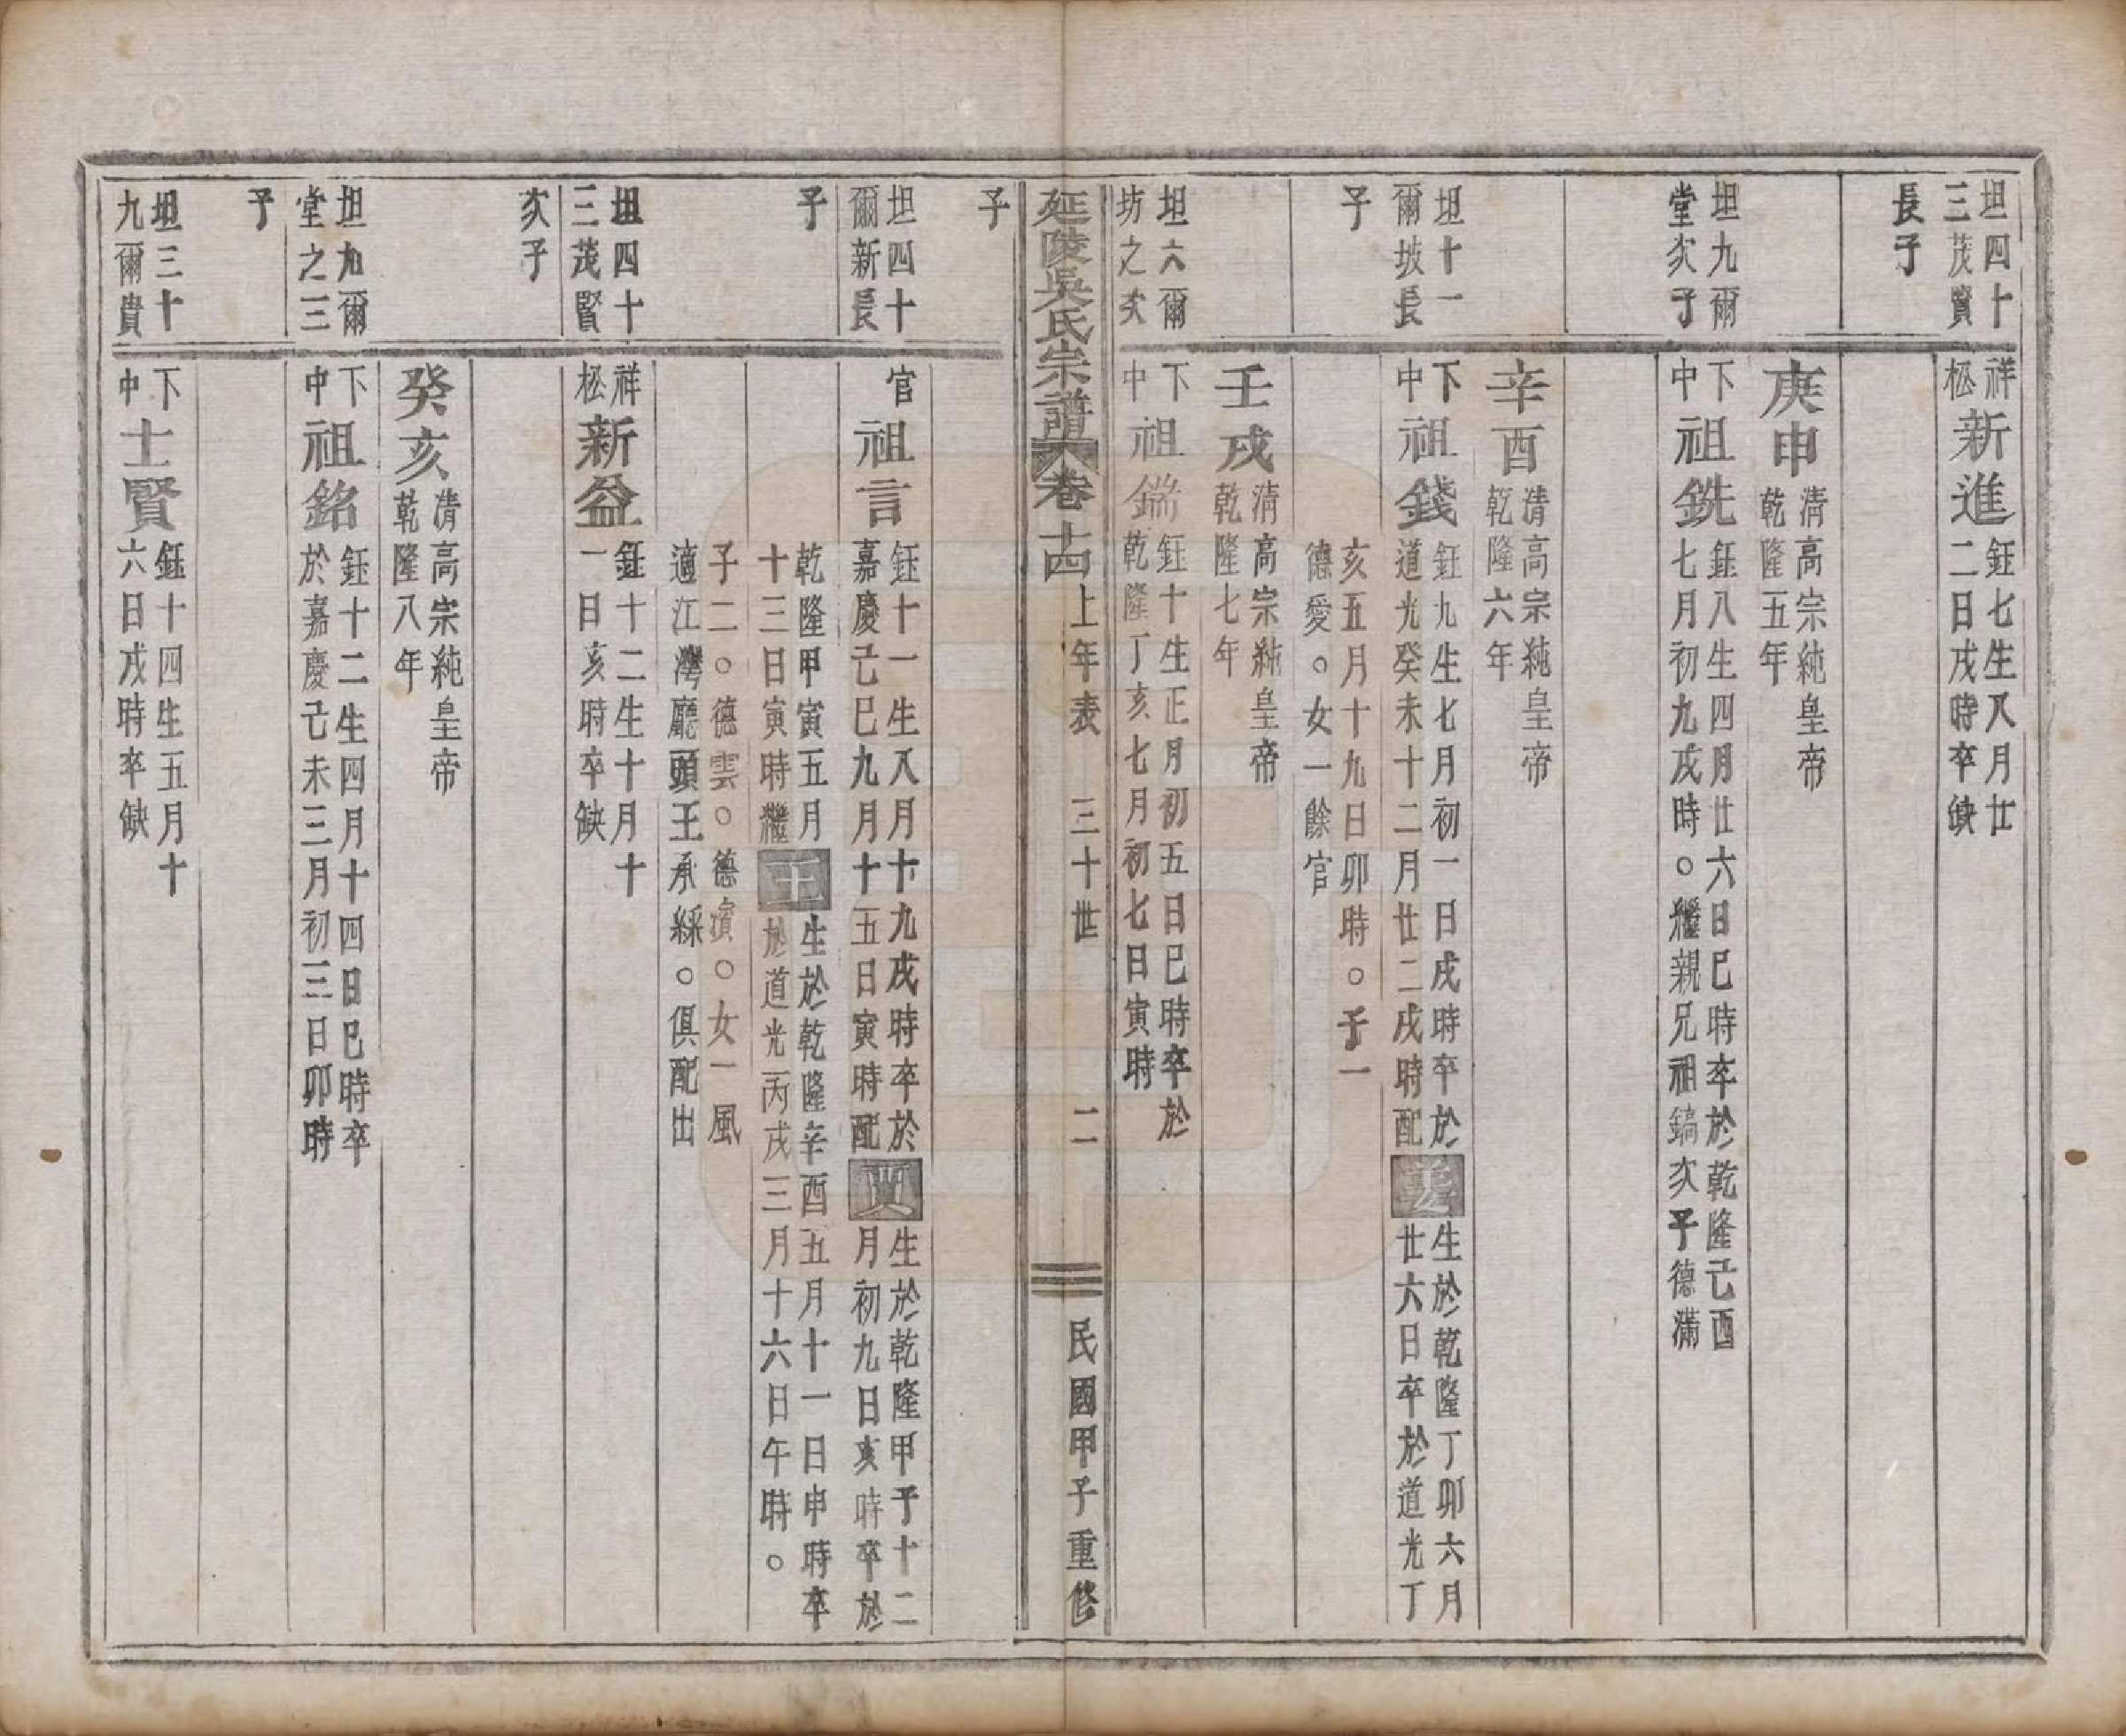 坦四十
三茂賢
長子
祥
松
新進
鈺七生八月廿
二日戌時卒缺
庚申
清高宗純皇帝
乾隆五年
坦九爾
堂次子
下
中
祖銑
鈺八生四月廿六日巳時卒於乾隆己酉
七月初九戌時。繼親兄祖鎬次子德滿
辛酉
清高宗純皇帝
乾隆六年
坦十一
爾坡長
子
下
中
祖錢
鈺九生七月初一日戌時卒於
道光癸未十二月廿二戌時配
姜
生於乾隆丁卯六月
廿六日卒於道光丁
亥五月十九日卯時。子一
德愛。女一餘官
壬戌
清高宗純皇帝
乾隆七年
坦六爾
坊之次
子
下
中
祖鍴
鈺十生正月初五日巳時卒於
乾隆丁亥七月初七日寅時
延陵吳氏宗譜
卷十四
上年表
三十世
二
民國甲子重修
坦四十
爾新長
子
官
祖言
鈺十一生八月十九戌時卒於
嘉慶己巳九月十五日寅時配
生於乾隆甲子十二
月初九日亥時卒於
乾隆甲寅五月
十三日寅時繼
王
生於乾隆辛酉五月十一日申時卒
於道光丙戌三月十六日午時。
子二。德雲。德濱。女一鳳
適江灣廳頭王承綵。俱配出
坦四十
三茂賢
次子
祥
松
新益
鈺十二生十月十
一日亥時卒缺
癸亥
清高宗純皇帝
乾隆八年
坦九爾
堂之三
子
下
中
祖銘
鈺十二生四月十四日巳時卒
於嘉慶己未三月初三日卯時
坦三十
九爾貴
下
中
士賢
鈺十四生五月十
六日戌時卒缺